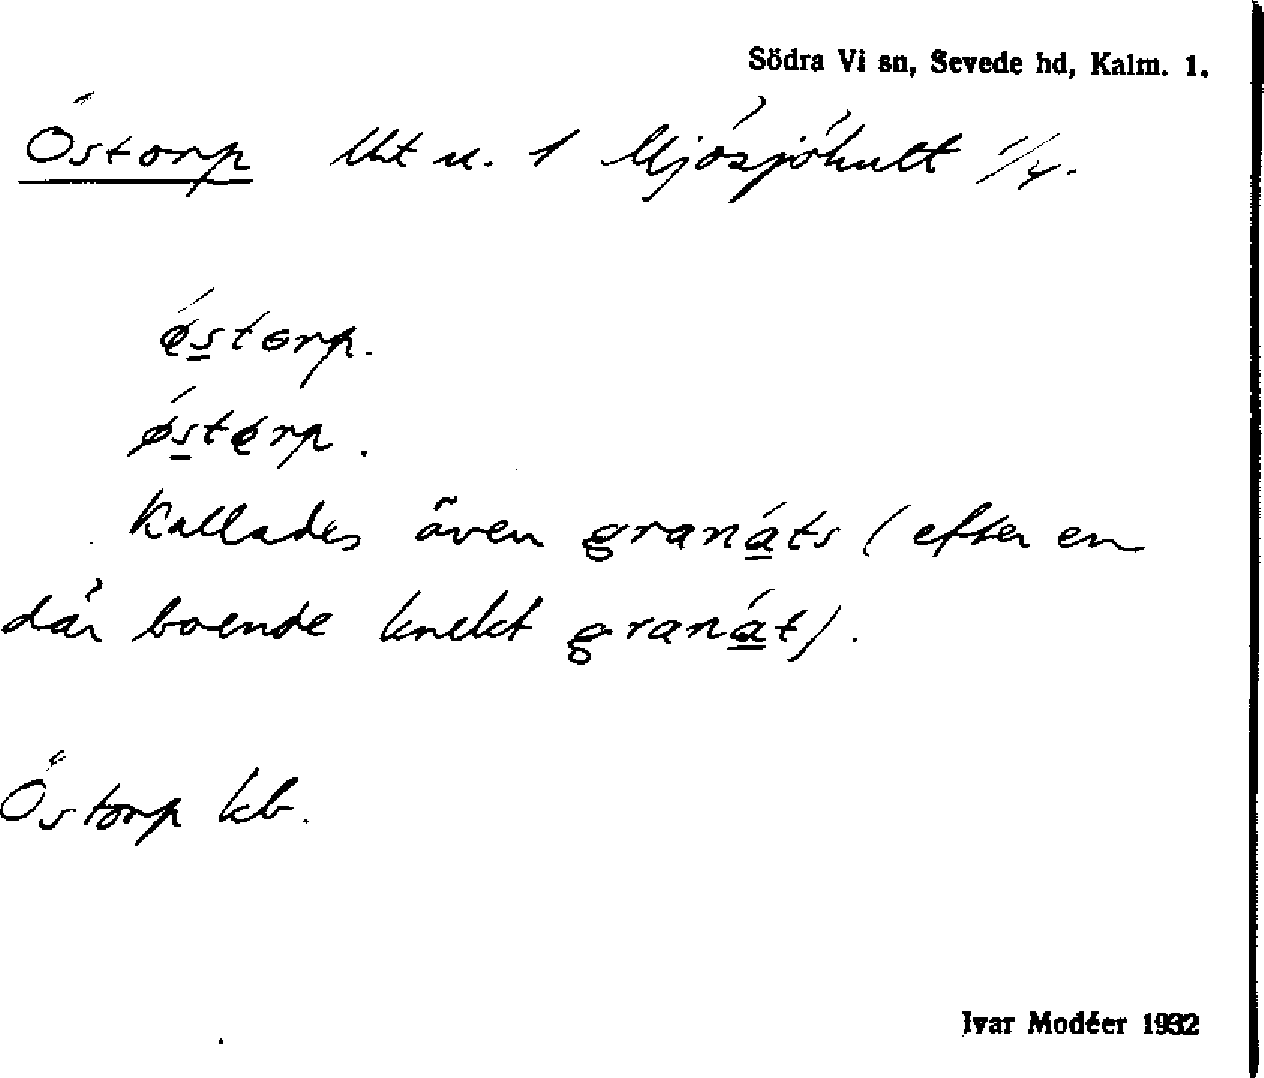 Södra Vi sn, Sevede hd, Kalm. l.
Östorp lht u. 1 Mjösjöhult 1/4.
östorp.
östɵrp.
Kallades även granáts (efter en
där boende knekt granát).
Östorp kb.
Ivar Modéer 1932